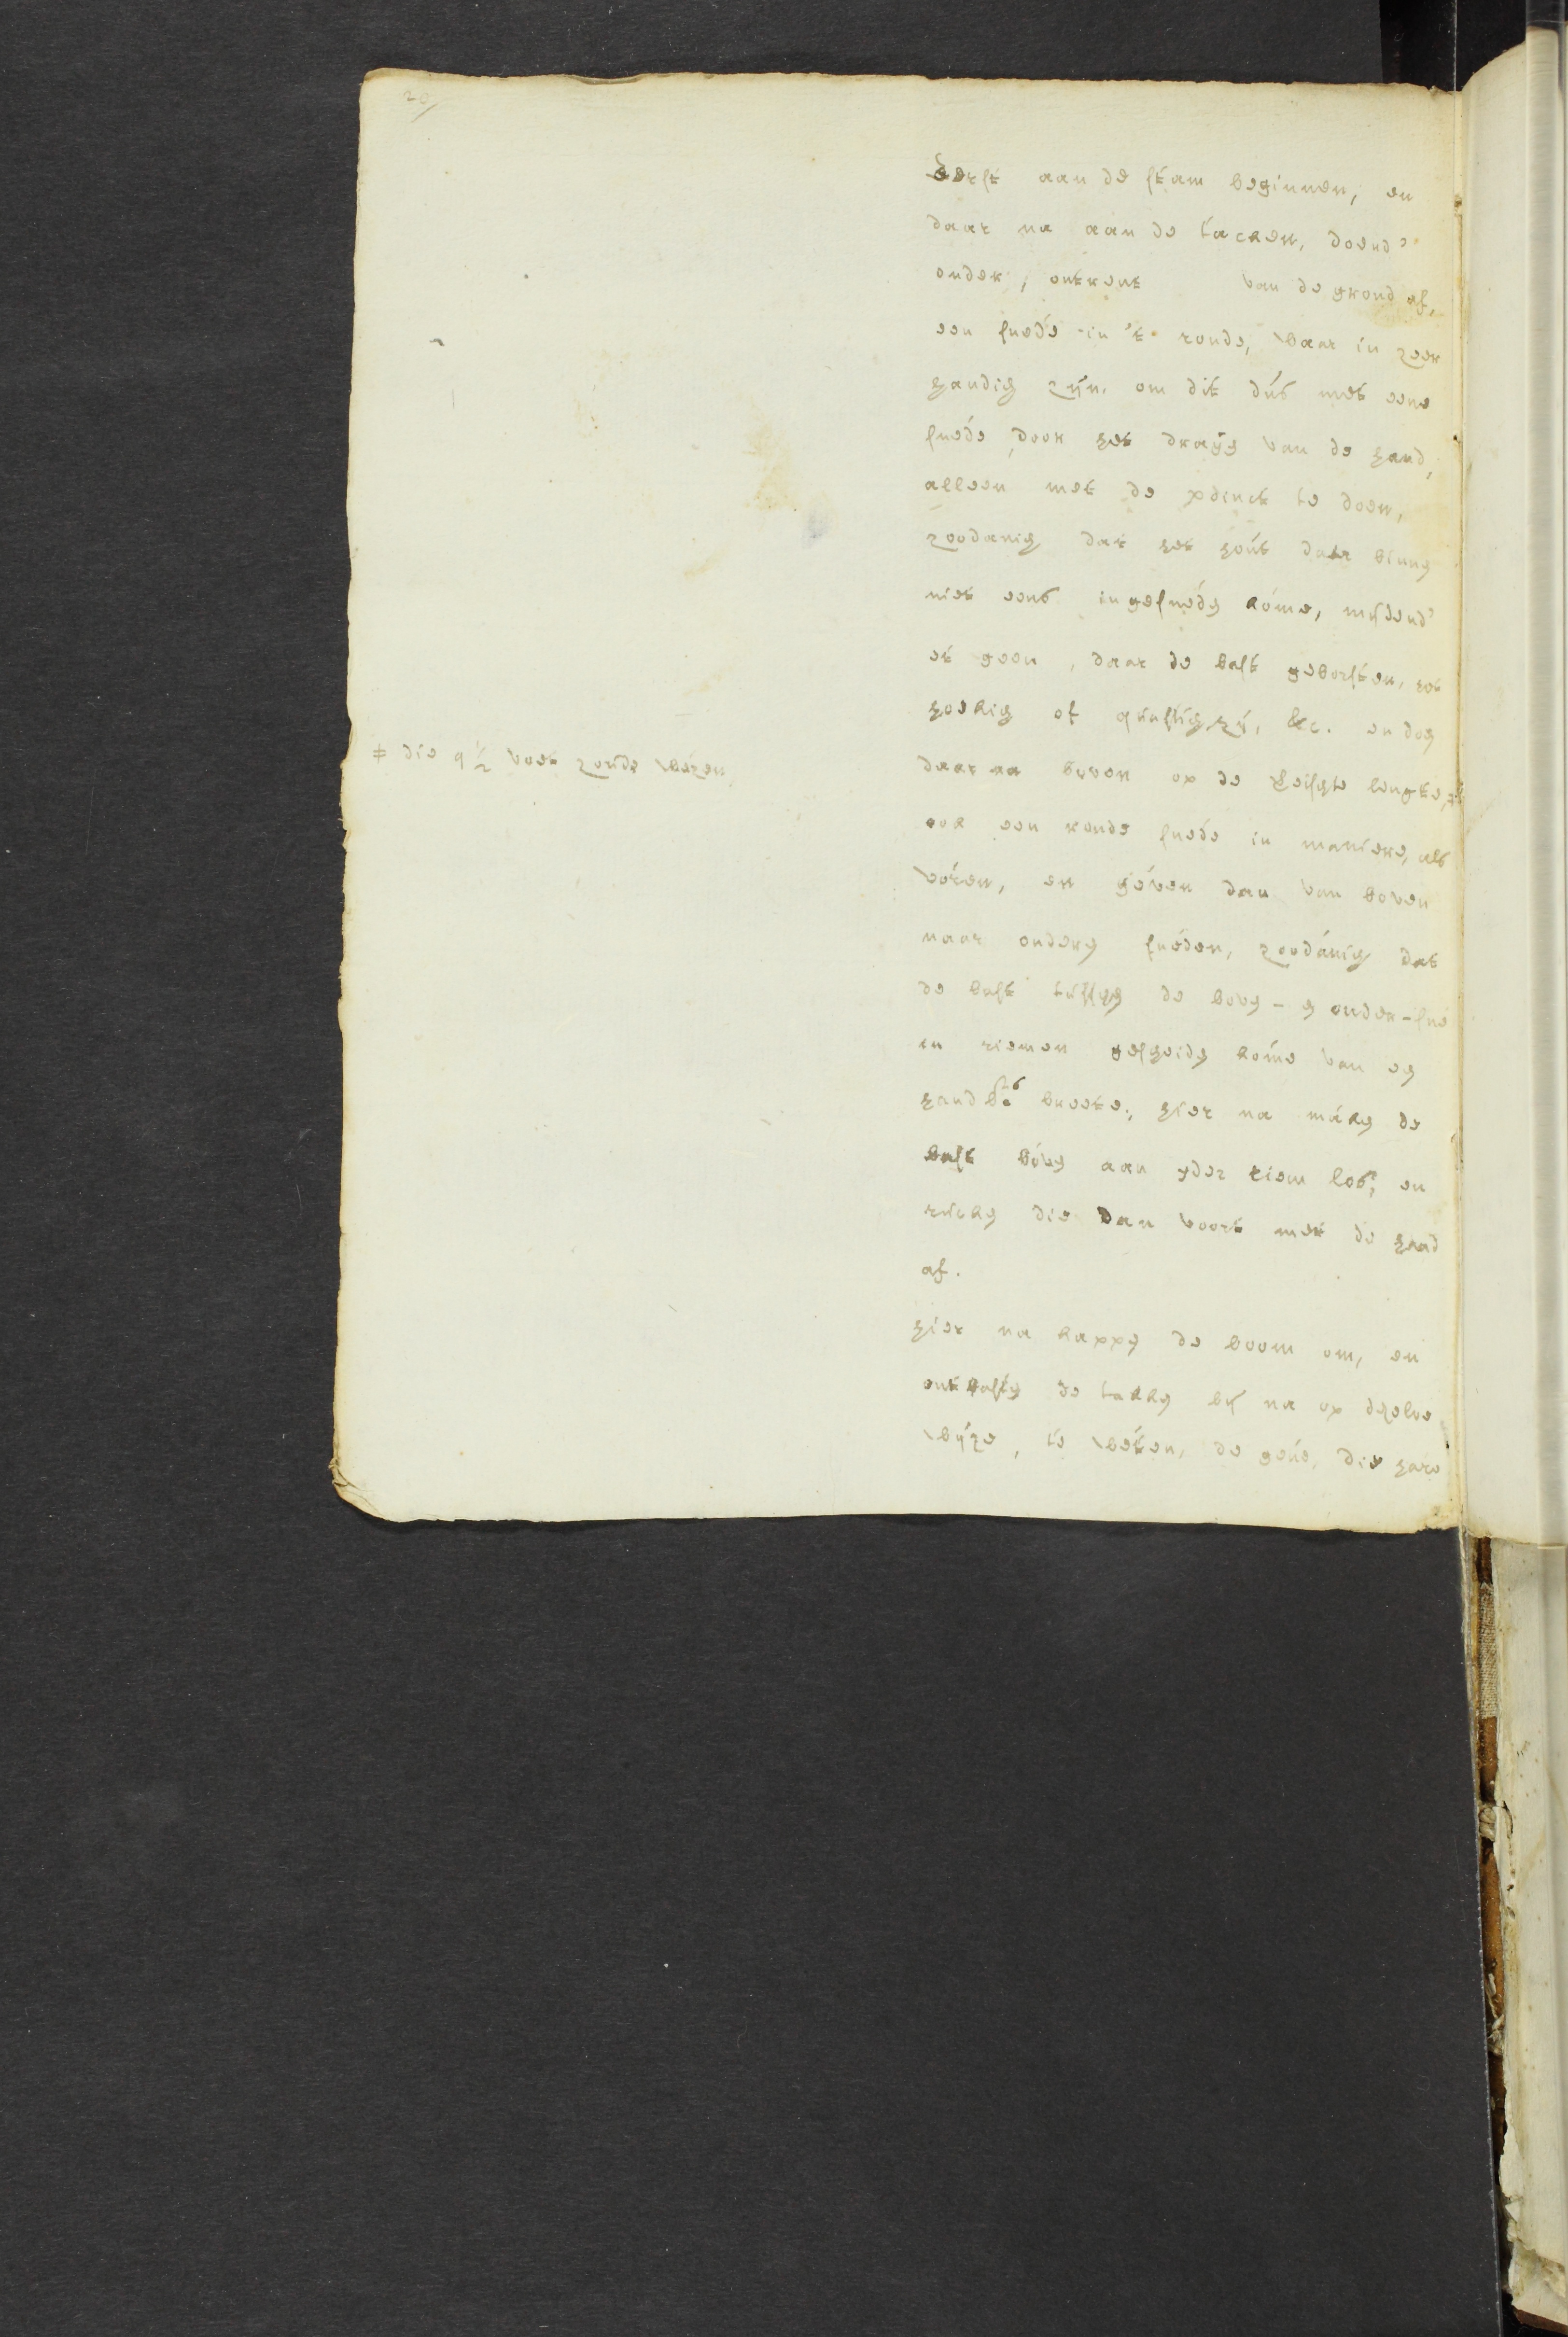 20/
Eerst aan de stam beginnen, en
daar na aan de tacken, doend'
onder, ontrent van de grond af,
een snede in 't ronde, waar in zeer
handig zijn, om dit dus met eene
snede, door het drayen van de hand,
alleen met de te doen,
zoodanig dat het hout daar binnen
niet eens ingesneden kome, mydend'
et geen, daar de bast geborsten, het
hoekig of zy, &c. en doen
daar na boven op de lengte, ‡
ook een ronde snede in maniere, als
voren, en geven dan van boven
naar onderen sneden, zoodanig dat
de bast tusschen de boven- en onder-sne
in riemen gescheiden kome van een
hand breete; hier na maken de
bast boven aan yder riem los, en
rucken die dan voort met de hand
af.
hier na kappen de boom om, en
ontbasten de takken by na op dezelve
wyze, te weten, de gene, die hare
‡ die 9 1/2 voet zoude wezen